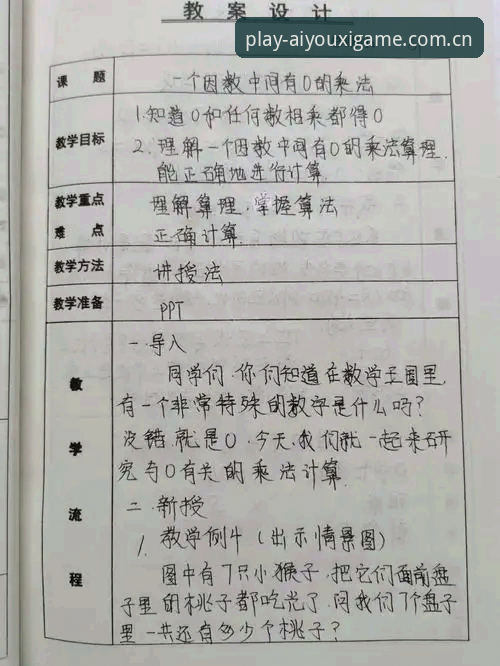 教案设计
play-aiyouxigame.com.cn
课题 一个因数中间有0的乘法
教学目标 1.知道0和任何数相乘都得0
2.理解一个因数中间有0的乘法算理,
能正确地进行计算.
教学重点 理解算理.掌握算法
难点 正确计算.
教学方法 讲授法
教学准备 PPT
教学流程
一.导入
同学们,你们知道在数学王国里,
有一个非常特殊的数字是什么吗?
没错,就是0.今天,我们就一起来研
究与0有关的乘法计算.
二.新授
1.教学例4(出示情景图)
图中有7只小猴子,把它们面前盘
子里的桃子都吃光了,问我们7个盘子
里一共还有多少个桃子?